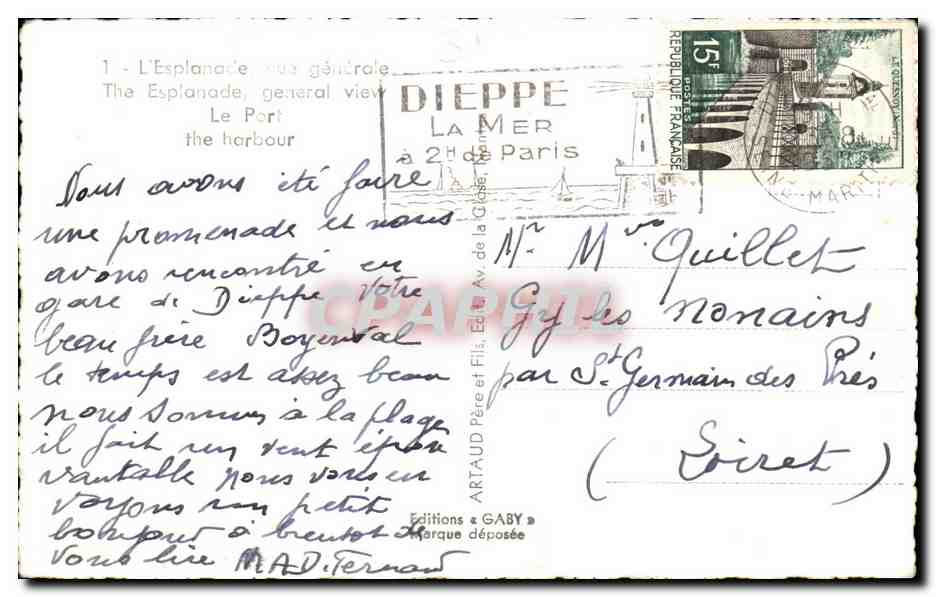 1 - L'Esplanade, vue générale
The Esplanade, general view
Le Port
the harbour
DIEPPE
LA MER
à 2H de Paris
15F
POSTES
RÉPUBLIQUE FRANÇAISE
LE QUESNOY
MARITIME
Nous avons été faire
une promenade et nous
avons rencontré en
gare de Dieppe Votre
beau frère Boyenval
le temps est assez beau
nous sommes à la plage
il fait un vent épou
vantable nous vous en
voyons un petit
bonjour à bientot de
vous lire M.A.D. Fernand
ARTAUD Père et Fils, Édit., Av. de la Close, Nantes
Editions « GABY »
Marque déposée
Mr Mme Quillet
Gy les nonains
par St Germain des Prés
(Loiret)
CPARHIL